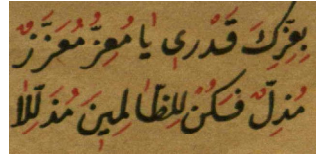 بِعِزِّكَ قَدْرِى يَا مُعِزُّ مُعَزَّزٌ
مُذِلٌّ فَكُنْ لِلظَّالِمِينَ مُذَلِّلَا